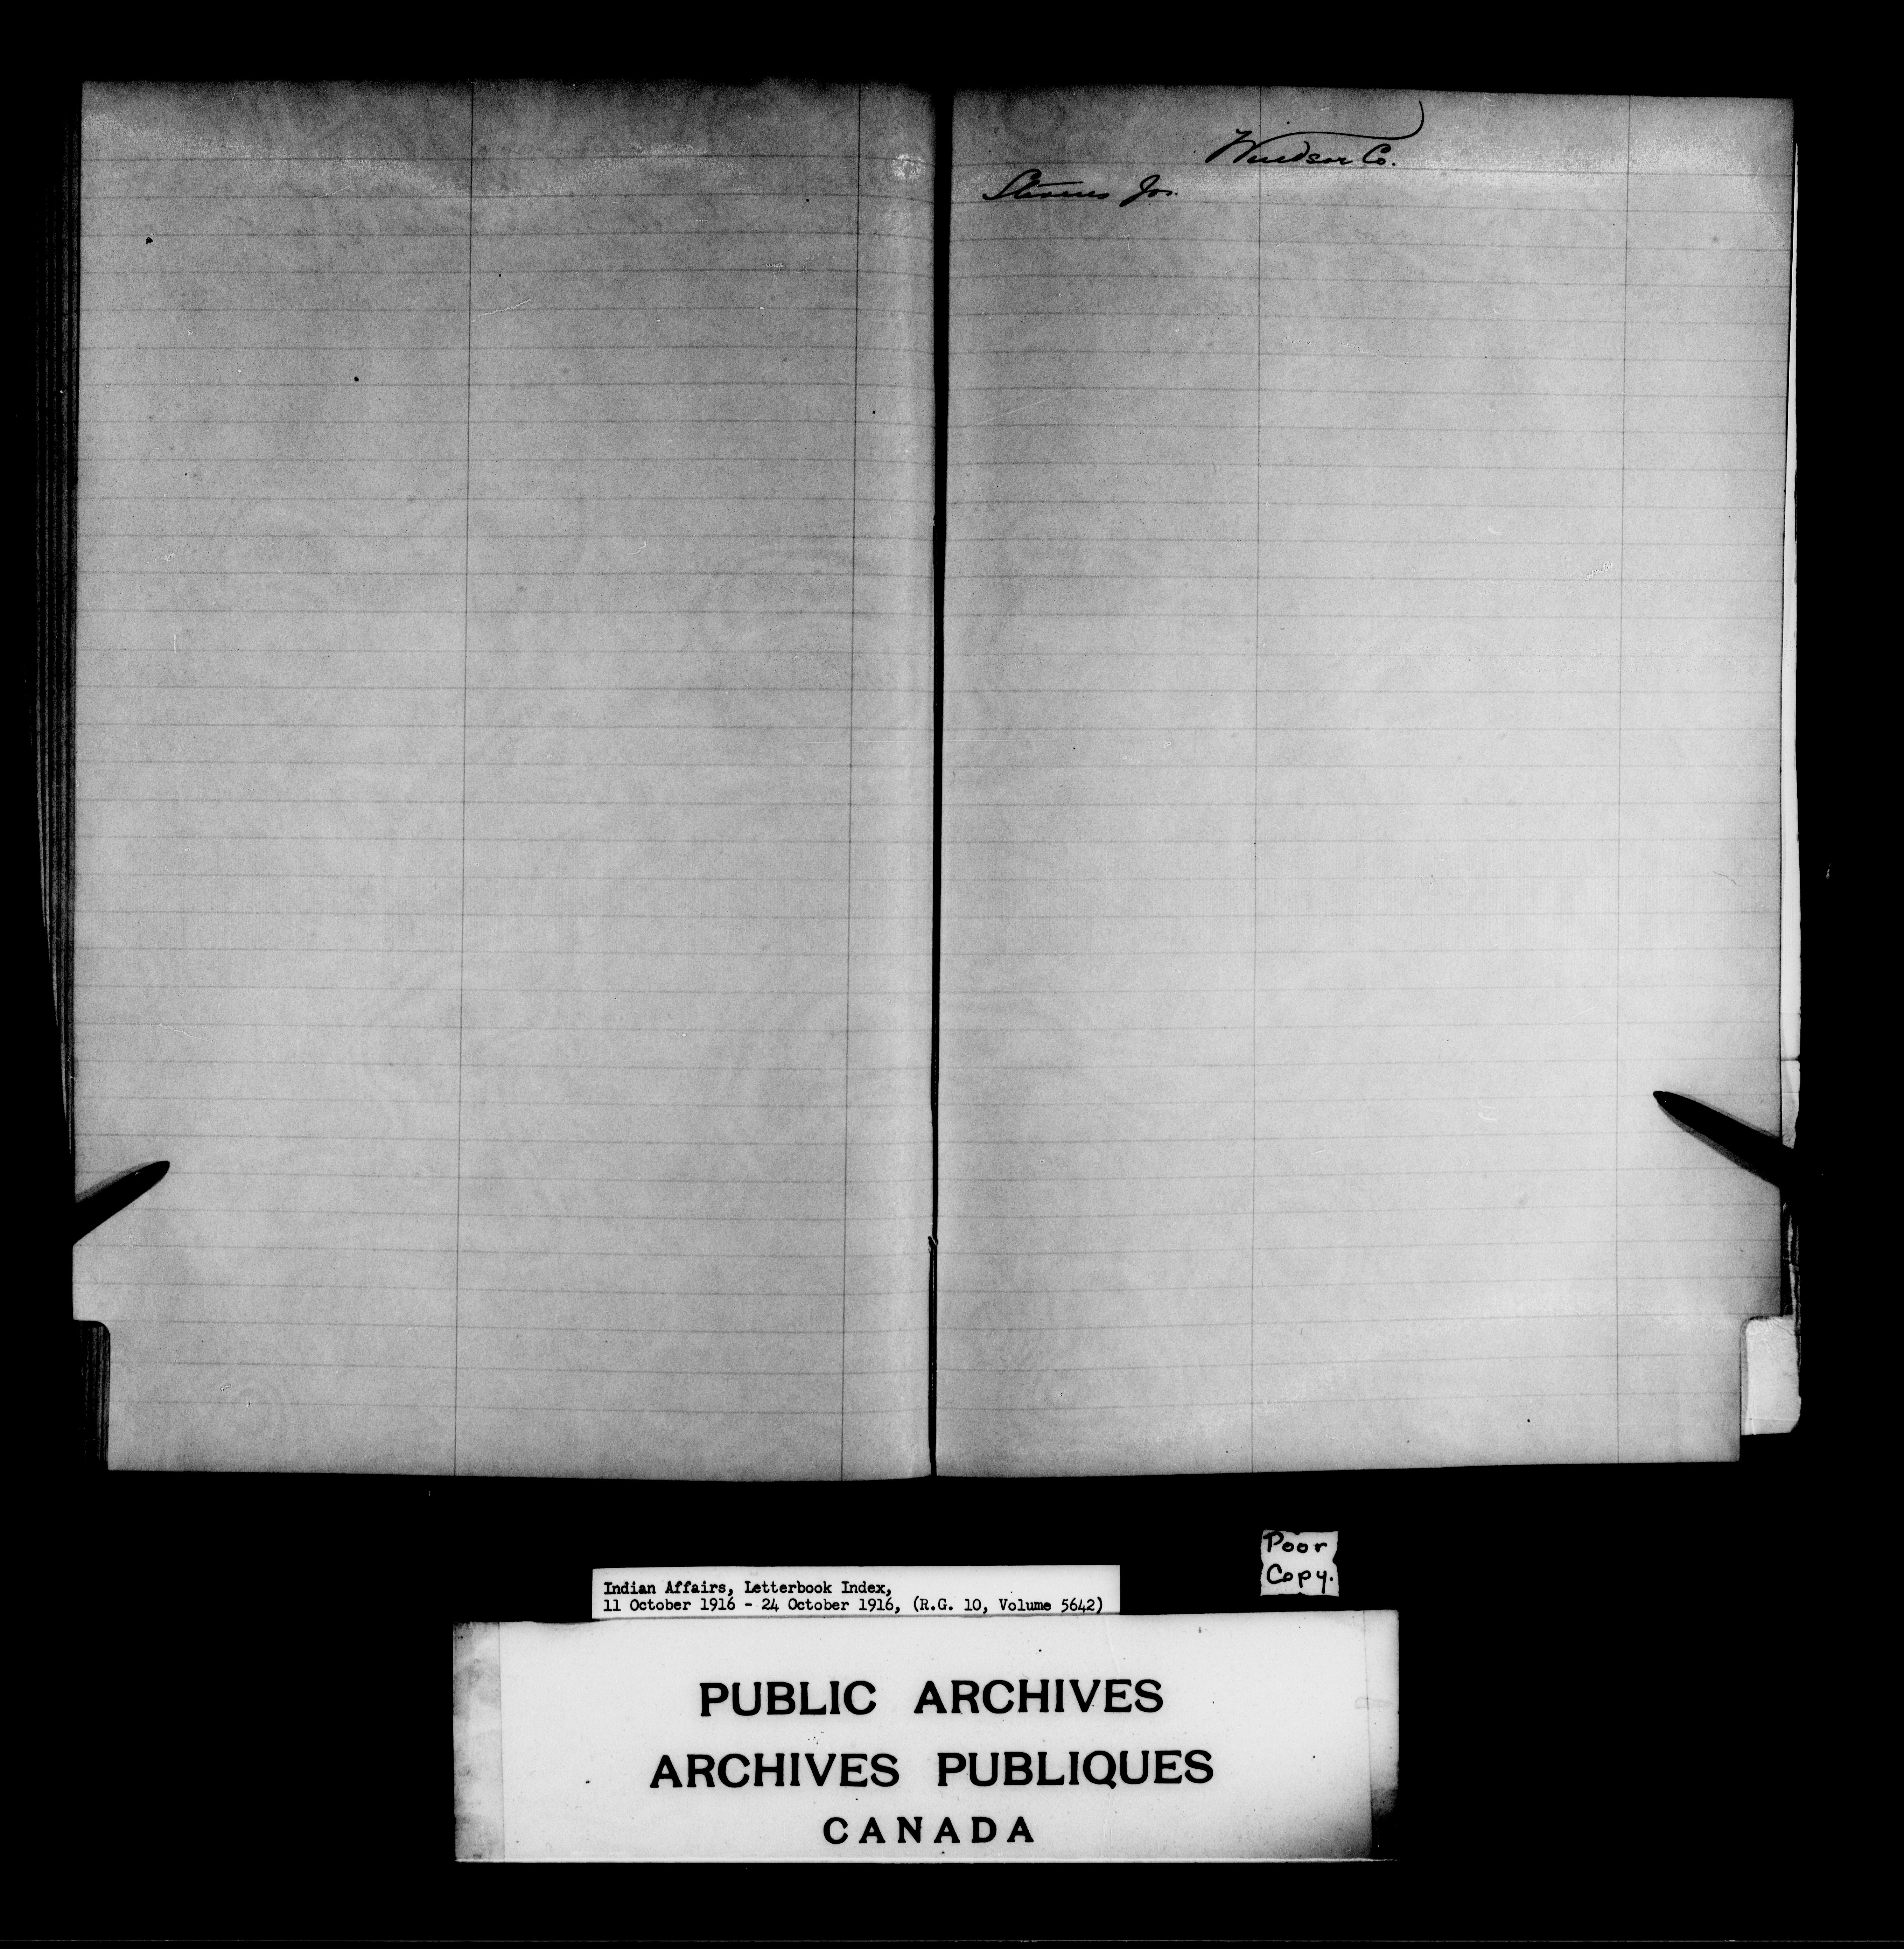 Windsor Co.
Stevens Jos.
Poor
Copy.
Indian Affairs, Letterbook Index,
11 October 1916 - 24 October 1916, (R.G. 10, Volume 5642)
PUBLIC ARCHIVES
ARCHIVES PUBLIQUES
CANADA